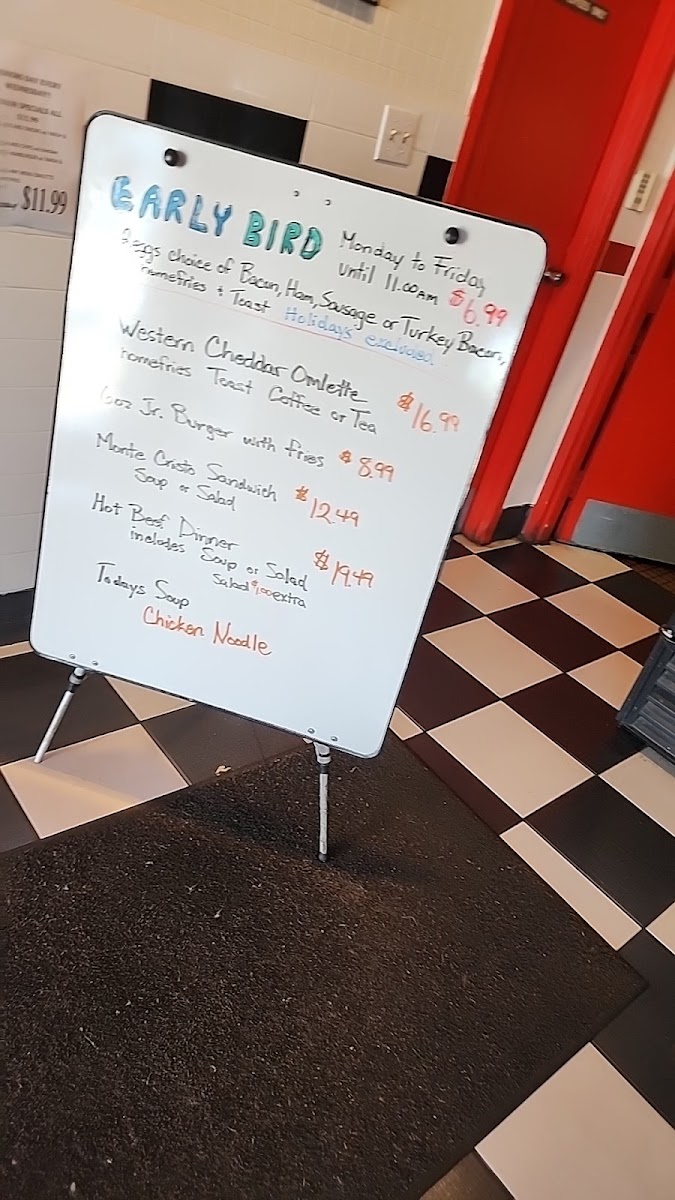 EARLY BIRD Monday to Friday
until 11.00AM $6.99
2 eggs choice of Bacon, Ham, Sausage or Turkey Bacon,
homefries + Toast Holidays excluded
Western Cheddar Omlette
homefries Toast Coffee or Tea $16.99
6oz Jr. Burger with fries $8.99
Monte Cristo Sandwich
Soup or Salad $12.49
Hot Beef Dinner
includes Soup or Salad $19.49
Salad $1.00 extra
Todays Soup
Chicken Noodle
$11.99